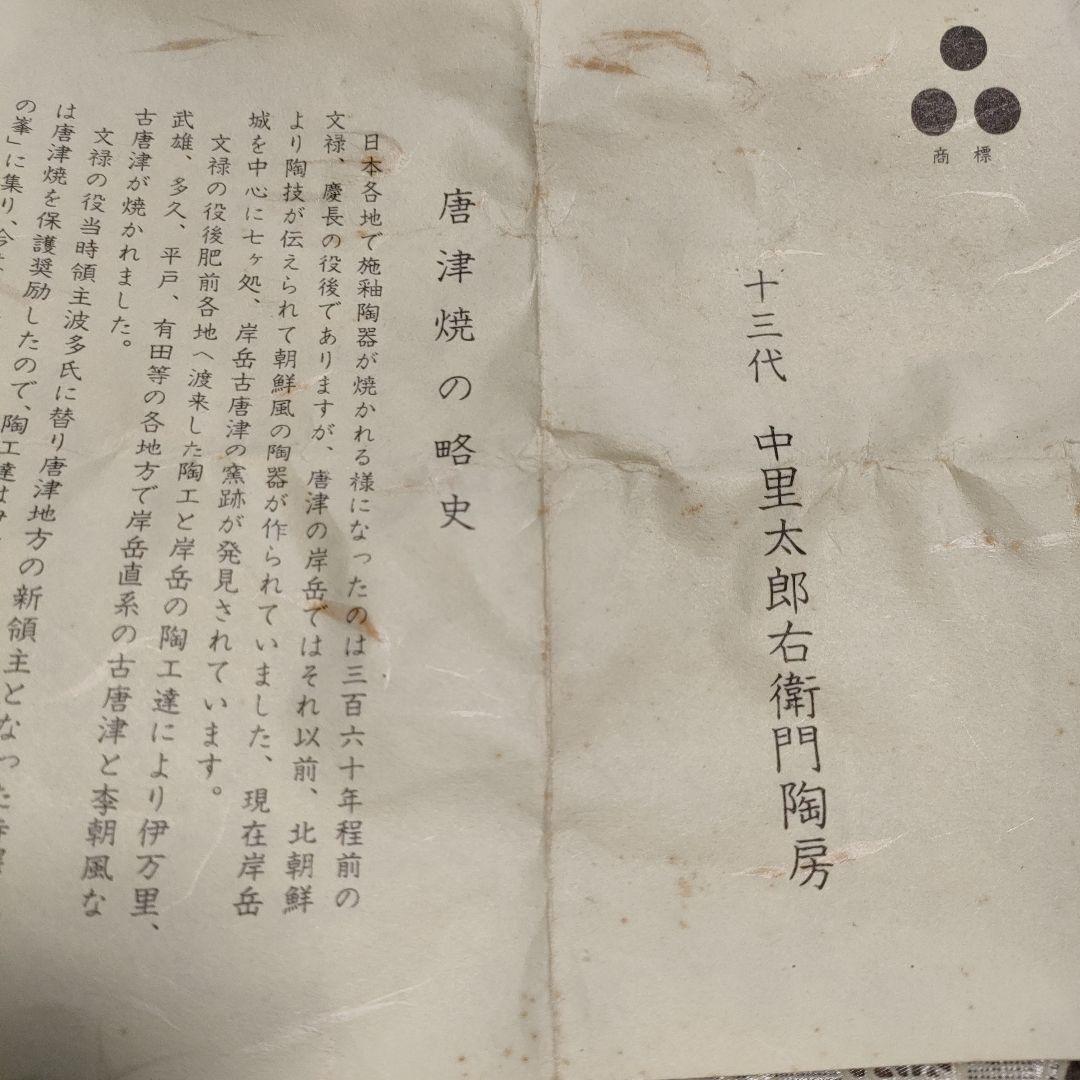 商標
十三代 中里太郎右衛門陶房
唐津焼の略史
日本各地で施釉陶器が焼かれる様になったのは三百六十年程前の
文禄、慶長の役後でありますが、唐津の岸岳ではそれ以前、北朝鮮
より陶技が伝えられて朝鮮風の陶器が作られていました、現在岸岳
城を中心に七ヶ処、岸岳古唐津の窯跡が発見されています。
文禄の役後肥前各地へ渡来した陶工と岸岳の陶工達により伊万里、
武雄、多久、平戸、有田等の各地方で岸岳直系の古唐津と李朝風な
古唐津が焼かれました。
文禄の役当時領主波多氏に替り唐津地方の新領主となった寺
は唐津焼を保護奨励したので、陶工達は
の峯」に集り、